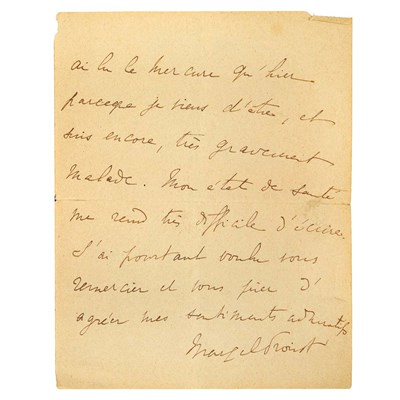 ai lu le Mercure qu'hier
parceque je viens d'être, et
suis encore, très gravement
malade. Mon état de santé
me rend très difficile d'écrire.
J'ai pourtant voulu vous
remercier et vous prier d'
agréer mes sentiments admiratifs
Marcel Proust